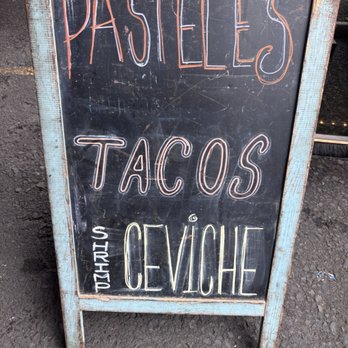 PASTELES
TACOS
SHRIMP CEVICHE